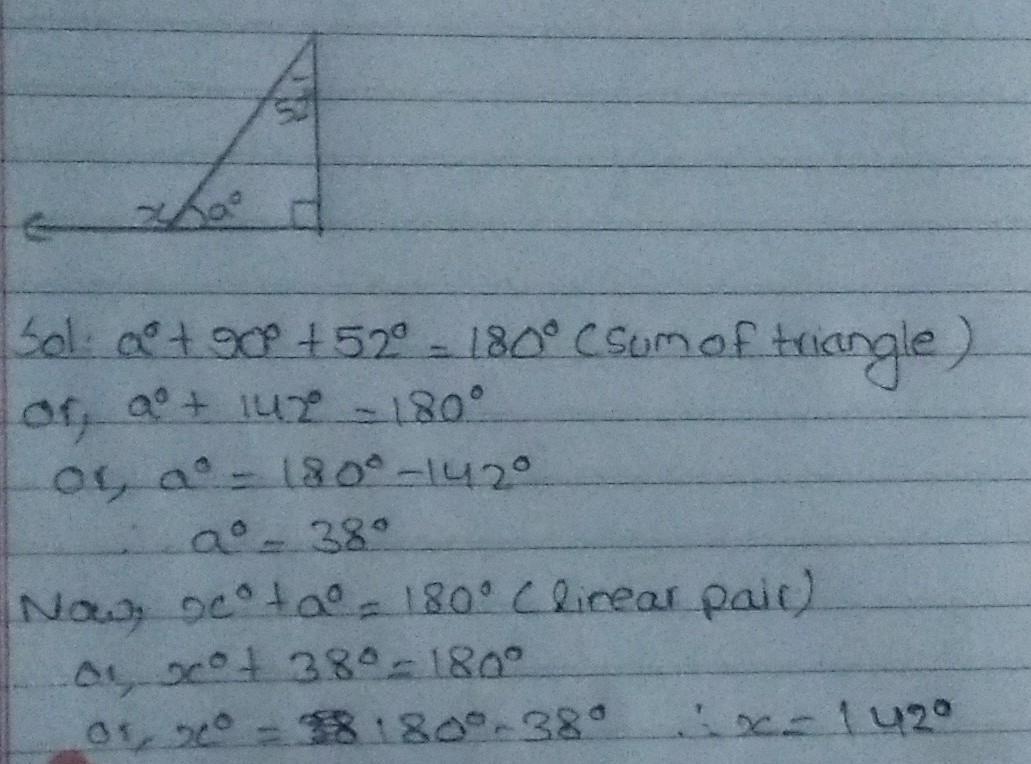 52°
x a°
Sol: a° + 90° + 52° = 180° (Sum of triangle)
or, a° + 142° = 180°
or, a° = 180° - 142°
a° = 38°
Now, x° + a° = 180° (linear pair)
or, x° + 38° = 180°
or, x° = 180° - 38° ∴ x = 142°